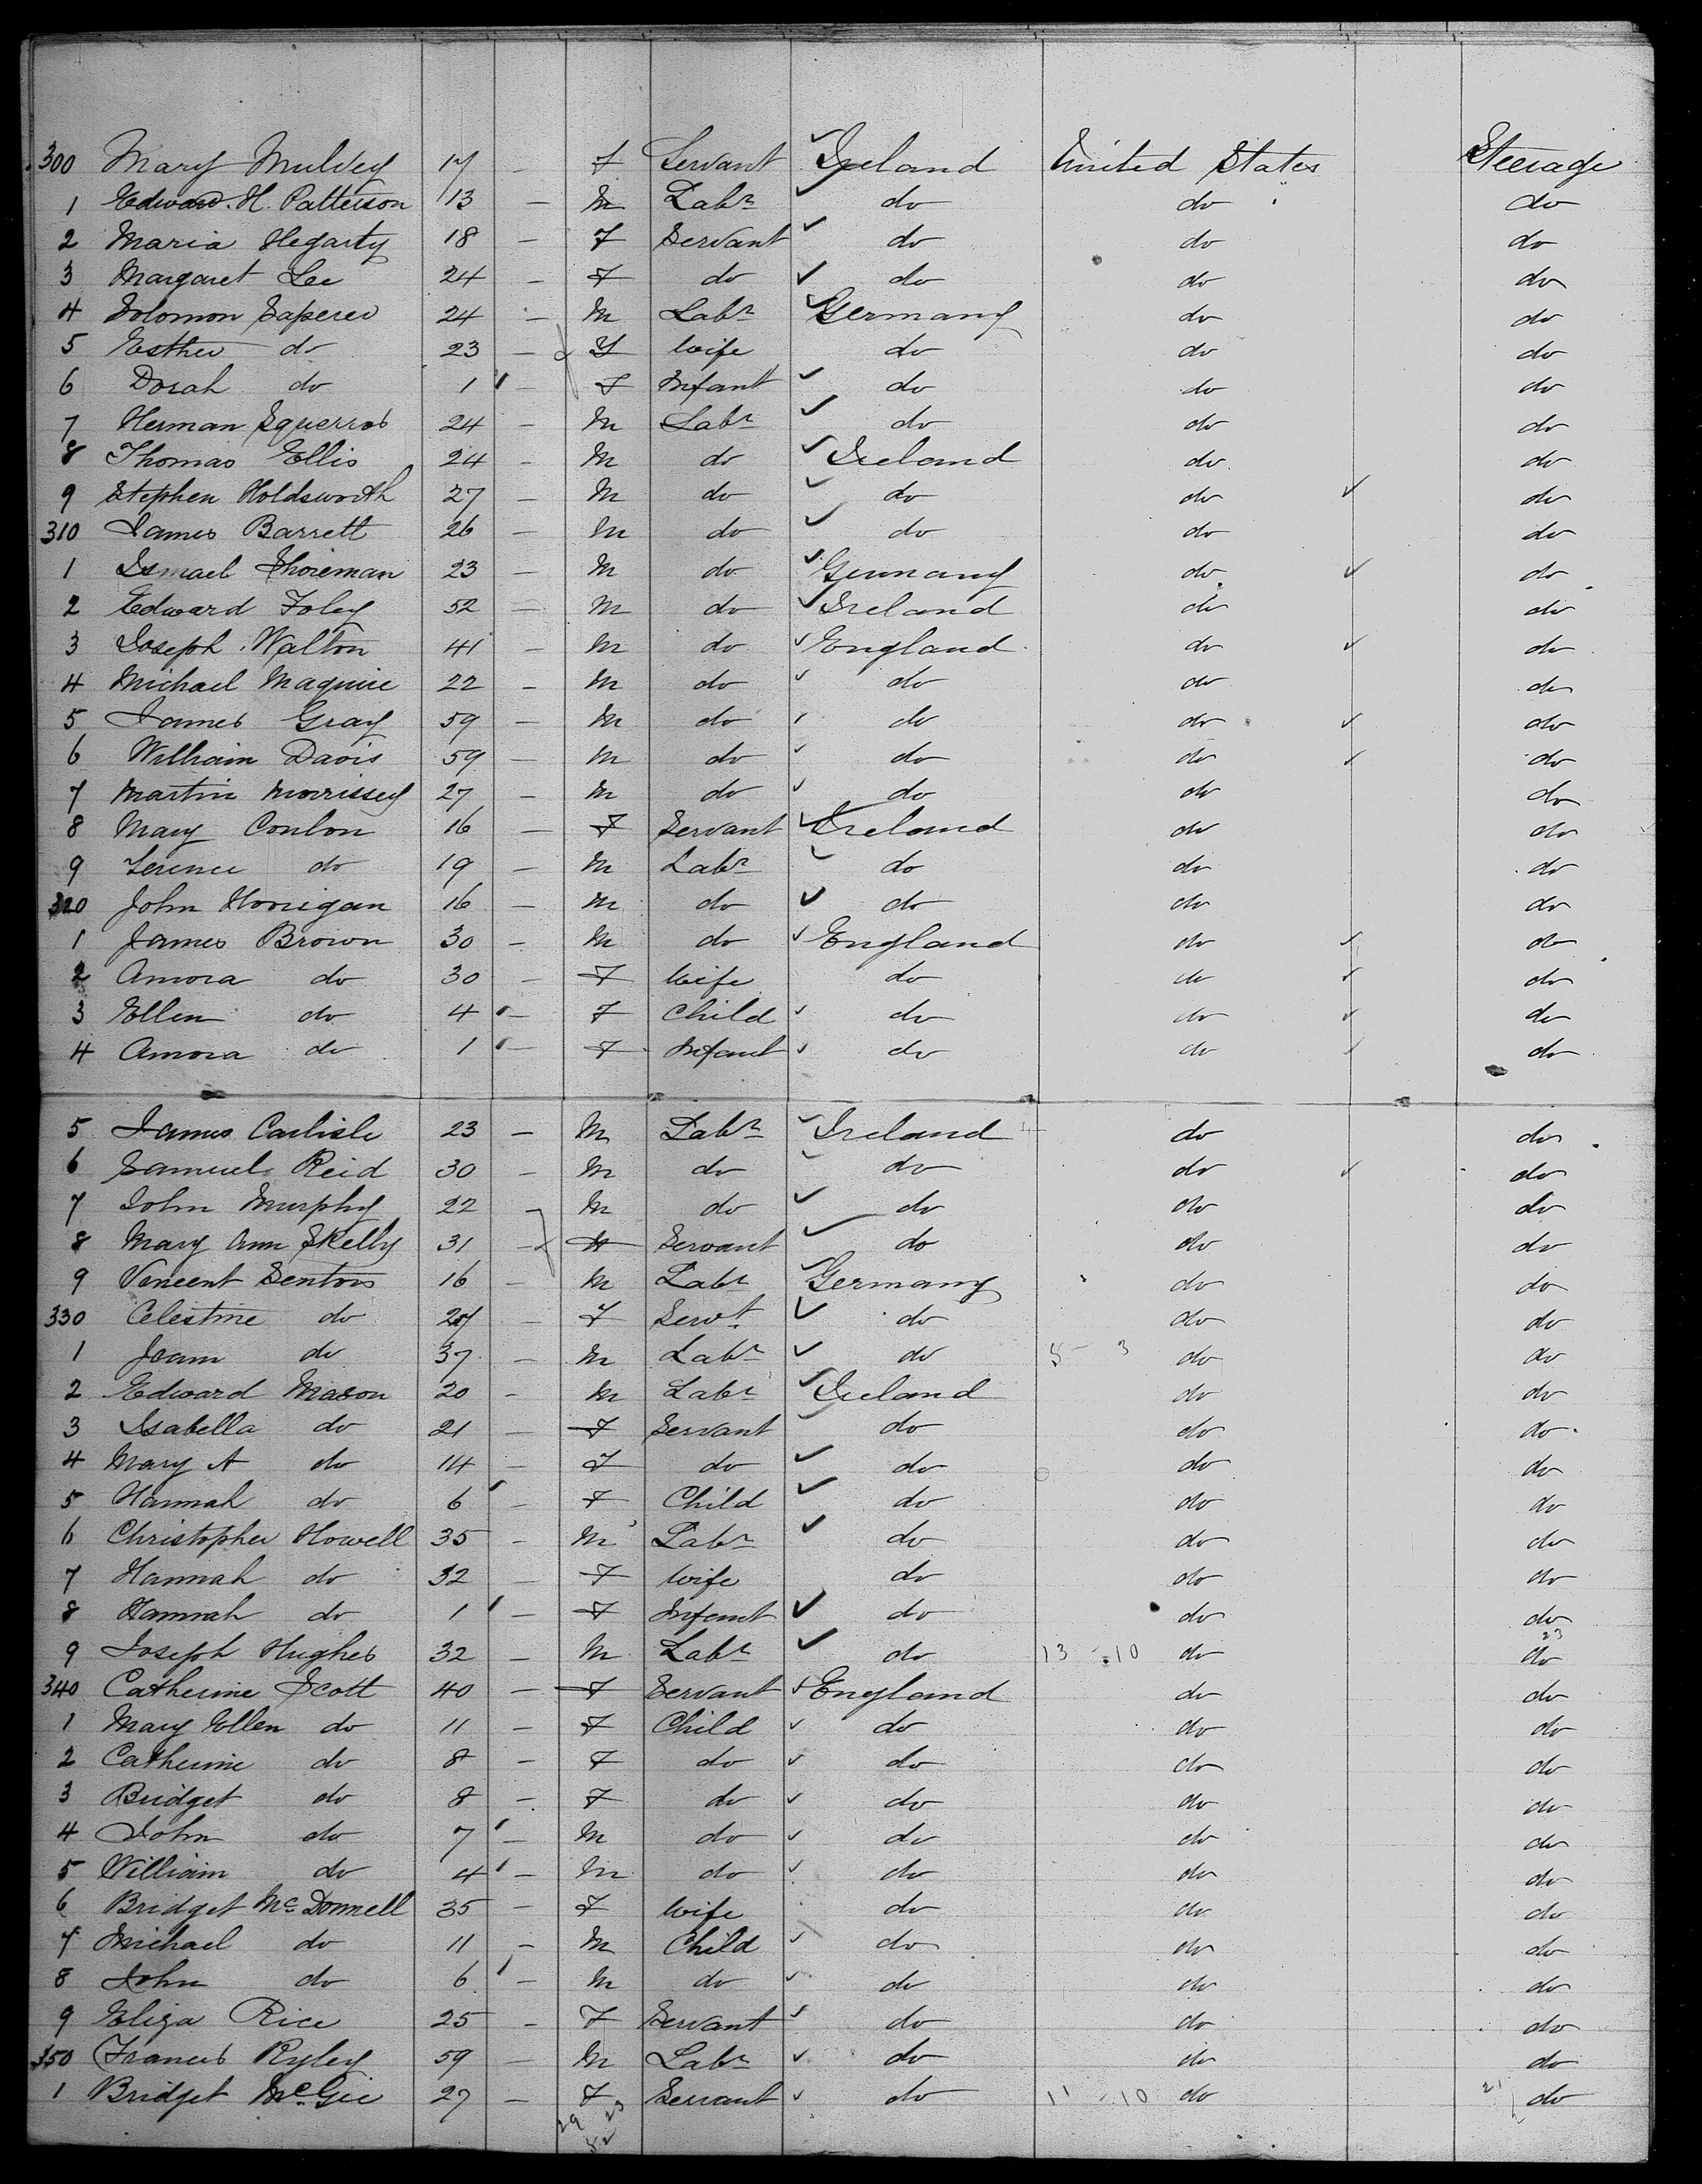 300 Mary Mulvey 17 — F Servant ✓ Ireland United States Steerage
1 Edward. H. Patterson 13 — M Labr ✓ do do do
2 Maria Hegarty 18 — F Servant ✓ do do do
3 Margaret Lee 24 — F do ✓ do do do
4 Solomon 24 — M Labr ✓ Germany do do
5 Esther do 23 — F Wife do do do
6 Dorah do 1 — F Infant ✓ do do do
7 Herman 24 — M Labr ✓ do do do
8 Thomas Ellis 24 — M do ✓ Ireland do do
9 Stephen Holdsworth 27 — M do ✓ do do ✓ do
310 James Barrett 26 — M do ✓ do do do
1 Ismael 23 — M do ✓ Germany do ✓ do
2 Edward Foley 52 — M do ✓ Ireland do do
3 Joseph Walton 41 — M do ✓ England do ✓ do
4 Michael Maguire 22 — M do ✓ do do do
5 James Gray 59 — M do do do ✓ do
6 William Davis 59 — M do ✓ do do ✓ do
7 Martin Morrissey 27 — M do ✓ do do do
8 Mary Conlon 16 — F Servant ✓ Ireland do do
9 Terence do 19 — M Labr ✓ do do do
320 John Horrigan 16 — M do ✓ do do do
1 James Brown 30 — M do ✓ England do ✓ do
2 Amora do 30 — F Wife do do ✓ do
3 Ellen do 4 — F Child ✓ do do ✓ do
4 Amora do 1 — F Infant ✓ do do ✓ do
5 James Carlisle 23 — M Labr ✓ Ireland do do
6 Samuel Reid 30 — M do ✓ do do ✓ do
7 John Murphy 22 — M do ✓ do do do
8 Mary Ann Skelly 31 — Servant ✓ do do do
9 Vincent Sentons 16 — M Labr ✓ Germany do do
330 Celestine do F Servt ✓ do do do
1 Joam do 37 — M Labr ✓ do 5 3 do do
2 Edward Mason 20 — M Labr ✓ Ireland do do
3 Isabella do 21 — F Servant ✓ do do do
4 Mary A do 14 — F do ✓ do do do
5 Hannah do 6 — F Child ✓ do do do
6 Christopher Howell 35 — M Labr ✓ do do do
7 Hannah do 32 — F Wife do do do
8 Hannah do 1 — F Infant ✓ do do do
9 Joseph Hughes 32 — M Labr ✓ do 13 10 do 23 do
340 Catherine Scott 40 — F Servant ✓ England do do
1 Mary Ellen do 11 — F Child ✓ do do do
2 Catherine do 8 — F do ✓ do do do
3 Bridget do 8 — F do ✓ do do do
4 John do 7 — M do ✓ do do do
5 William do 4 — M do ✓ do do do
6 Bridget McDonnell 35 — F Wife do do do
7 Michael do 11 — M Child ✓ do do do
8 John do 6 — M do ✓ do do do
9 Eliza Rice 25 — F Servant ✓ do do do
350 Francis Ryley 59 — M Labr ✓ do do do
1 Bridget McGie 27 — F Servant ✓ do 11 10 do 21 do
29 23
52